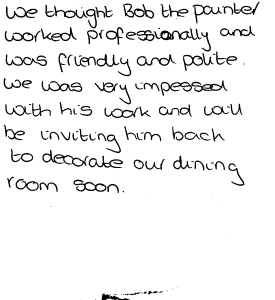 We thought Bob the painter
worked professionally and
was friendly and polite.
We was very impessed
with his work and will
be inviting him back
to decorate our dining
room soon.